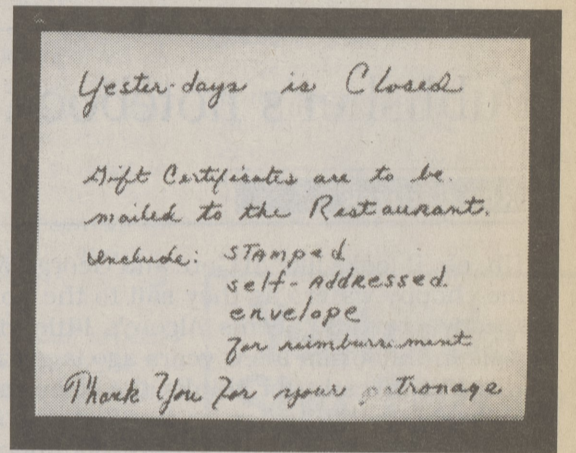 Yester-days is Closed
Gift Certificates are to be
mailed to the Restaurant.
include: stamped
self-Addressed
envelope
for reimbursement
Thank You For your patronage